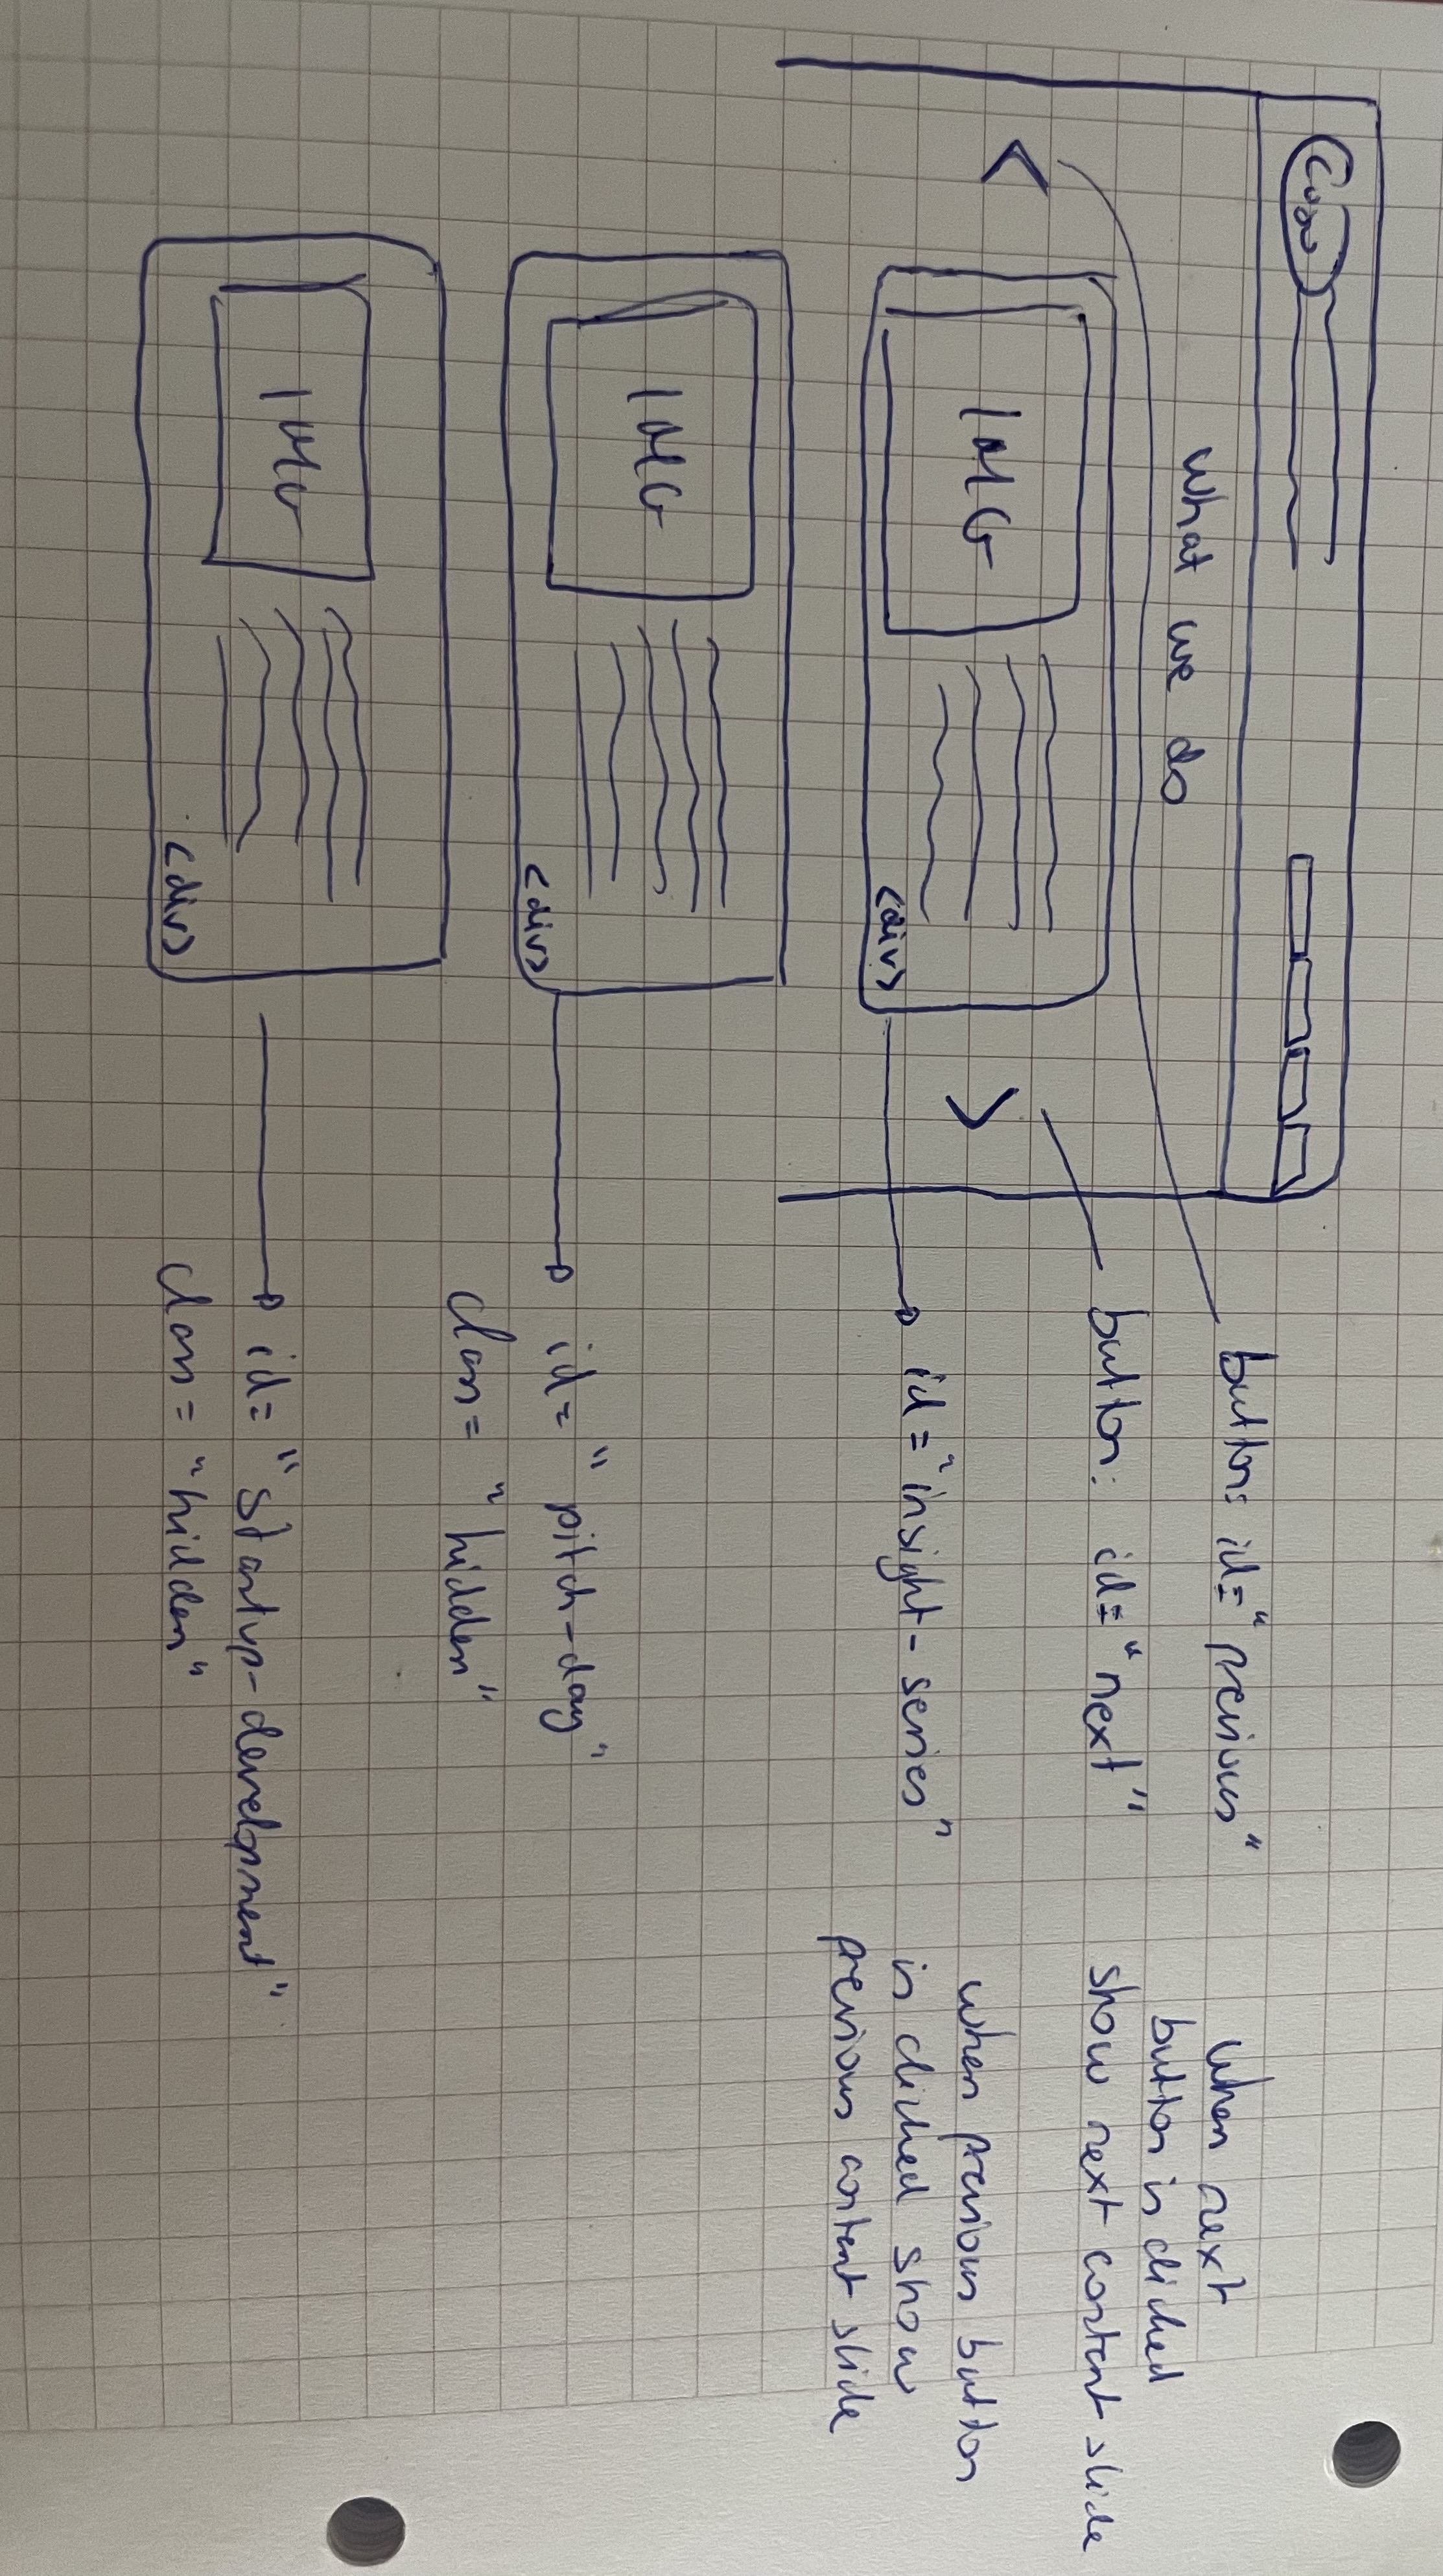 Logo
what we do
button: id="previous"
button: id="next"
<
IMG
>
<div>
id="insight-series"
when next
button is clicked
show next content slide
when previous button
is clicked show
previous content slide
IMG
<div>
id="pitch-day"
class="hidden"
IMG
<div>
id="startup-development"
class="hidden"